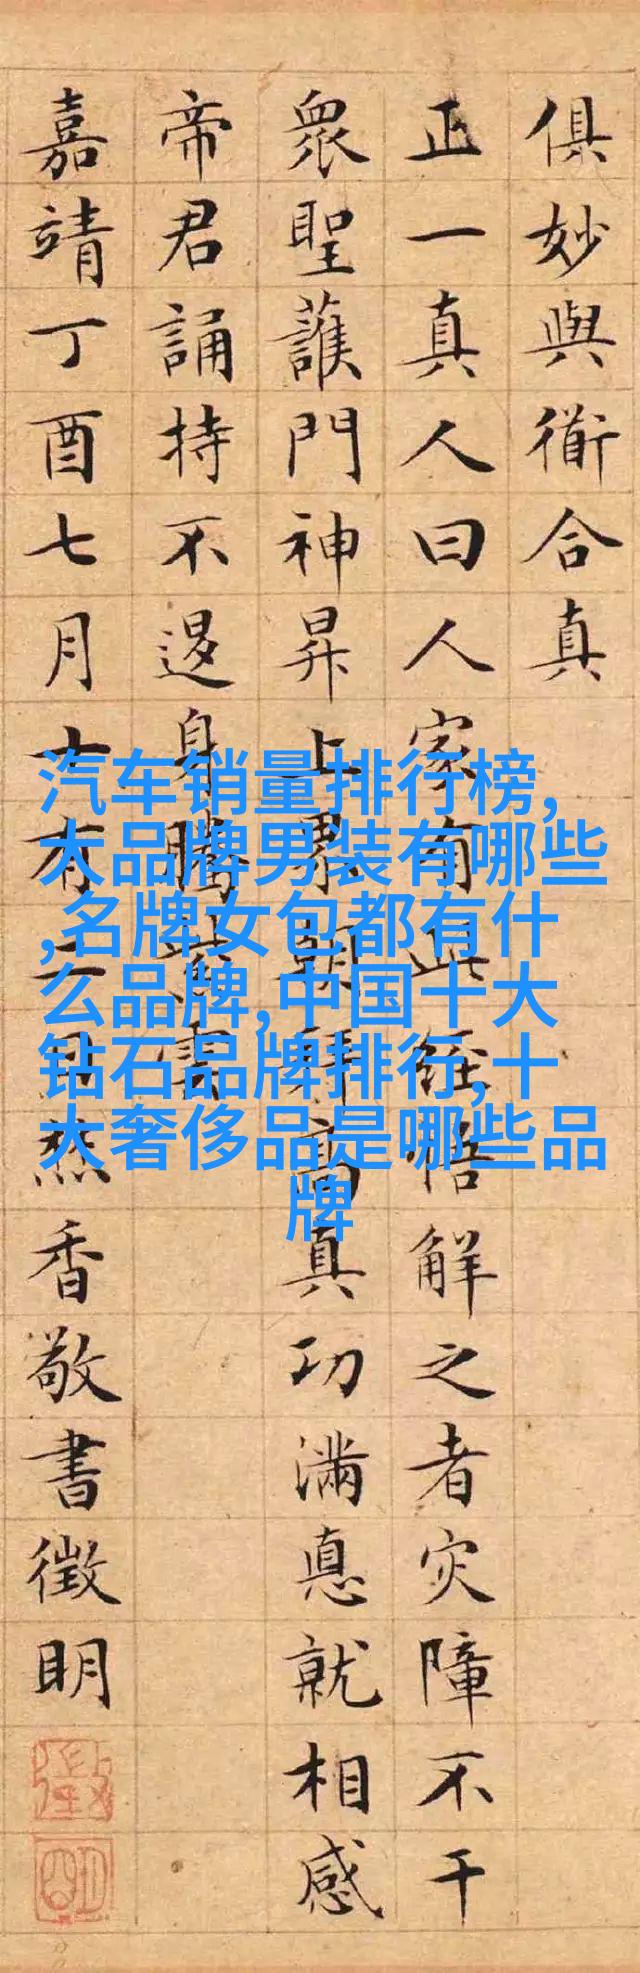 俱妙與衜合真
正一真人曰人家有此經悟解之者灾障不干
衆聖護門神昇上界朝拜高真功滿悳就相感
帝君誦持不退身騰紫雲
嘉靖丁酉七月十有二日然香敬書徵明
徵
明
汽车销量排行榜,
大品牌男装有哪些
,名牌女包都有什
么品牌,中国十大
钻石品牌排行,十
大奢侈品是哪些品
牌